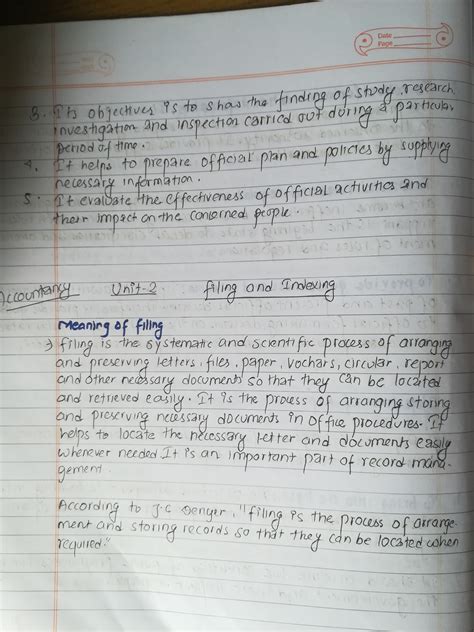 Date
Page
3. Its objectives is to shas the finding of study, research,
investigation and inspection carried out during a particular
period of time.
4. It helps to prepare official plan and policies by supplying
necessary information.
5. It evaluate the effectiveness of official activities and
their impact on the consorned people.
Accountancy Unit-2 filing and Indexing
Meaning of filing
→ filing is the systematic and scientific process of arranging
and preserving letters, files, paper, vochars, circular, report
and other necessary documents so that they can be located
and retrieved easily. It is the process of arranging storing
and preserving necessary documents in office procedures. It
helps to locate the necessary letter and documents easily
whenever needed It is an important part of record mana-
gement.
According to J.C Denyer, "filing is the process of arrange-
ment and storing records so that they can be located when
required."